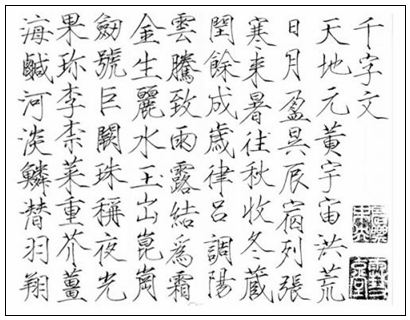 千字文
天地元黃宇宙洪荒
日月盈昃辰宿列張
寒来暑往秋收冬藏
閏餘成歲律呂調陽
雲騰致雨露結爲霜
金生麗水玉出崑崗
劒號巨闕珠稱夜光
果珎李柰菜重芥薑
海鹹河淡鱗替羽翔